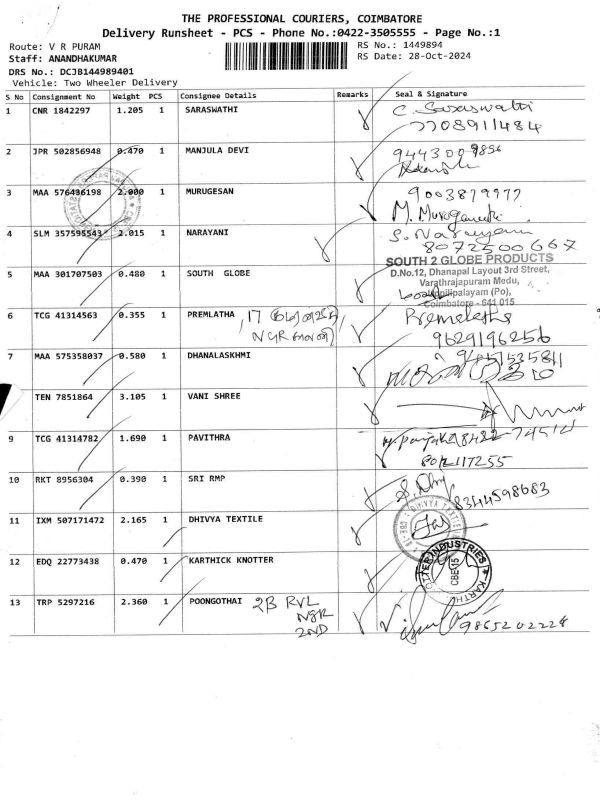 THE PROFESSIONAL COURIERS, COIMBATORE
Delivery Runsheet - PCS - Phone No.:0422-3505555 - Page No.:1
Route: V R PURAM
RS No.: 1449894
Staff: ANANDHAKUMAR
RS Date: 28-Oct-2024
DRS No.: DCJB144989401
Vehicle: Two Wheeler Delivery
S No Consignment No Weight PCS Consignee Details Remarks Seal & Signature
1 CNR 1842297 1.205 1 SARASWATHI C. Saraswathi
7708911484
2 JPR 502856948 0.470 1 MANJULA DEVI
3 MAA 576436198 2.000 1 MURUGESAN 9003879977
4 SLM 357595543 2.015 1 NARAYANI S. Narayani
8072500667
5 MAA 301707503 0.480 1 SOUTH GLOBE SOUTH 2 GLOBE PRODUCTS
D.No.12, Dhanapal Layout 3rd Street,
Varathrajapuram Medu,
Coimbatore - 641 015
6 TCG 41314563 0.355 1 PREMLATHA , 17 Premelatha
9629196256
7 MAA 575358037 0.580 1 DHANALASKHMI
TEN 7851864 3.105 1 VANI SHREE
9 TCG 41314782 1.690 1 PAVITHRA
10 RKT 8956304 0.390 1 SRI RMP
8344598683
11 IXM 507171472 2.165 1 DHIVYA TEXTILE DHIVYA TEXTILE
12 EDQ 22773438 0.470 1 KARTHICK KNOTTER INDUSTRIES
CBE-15
13 TRP 5297216 2.360 1 POONGOTHAI 2B RVL
NGR
2ND
9865202228